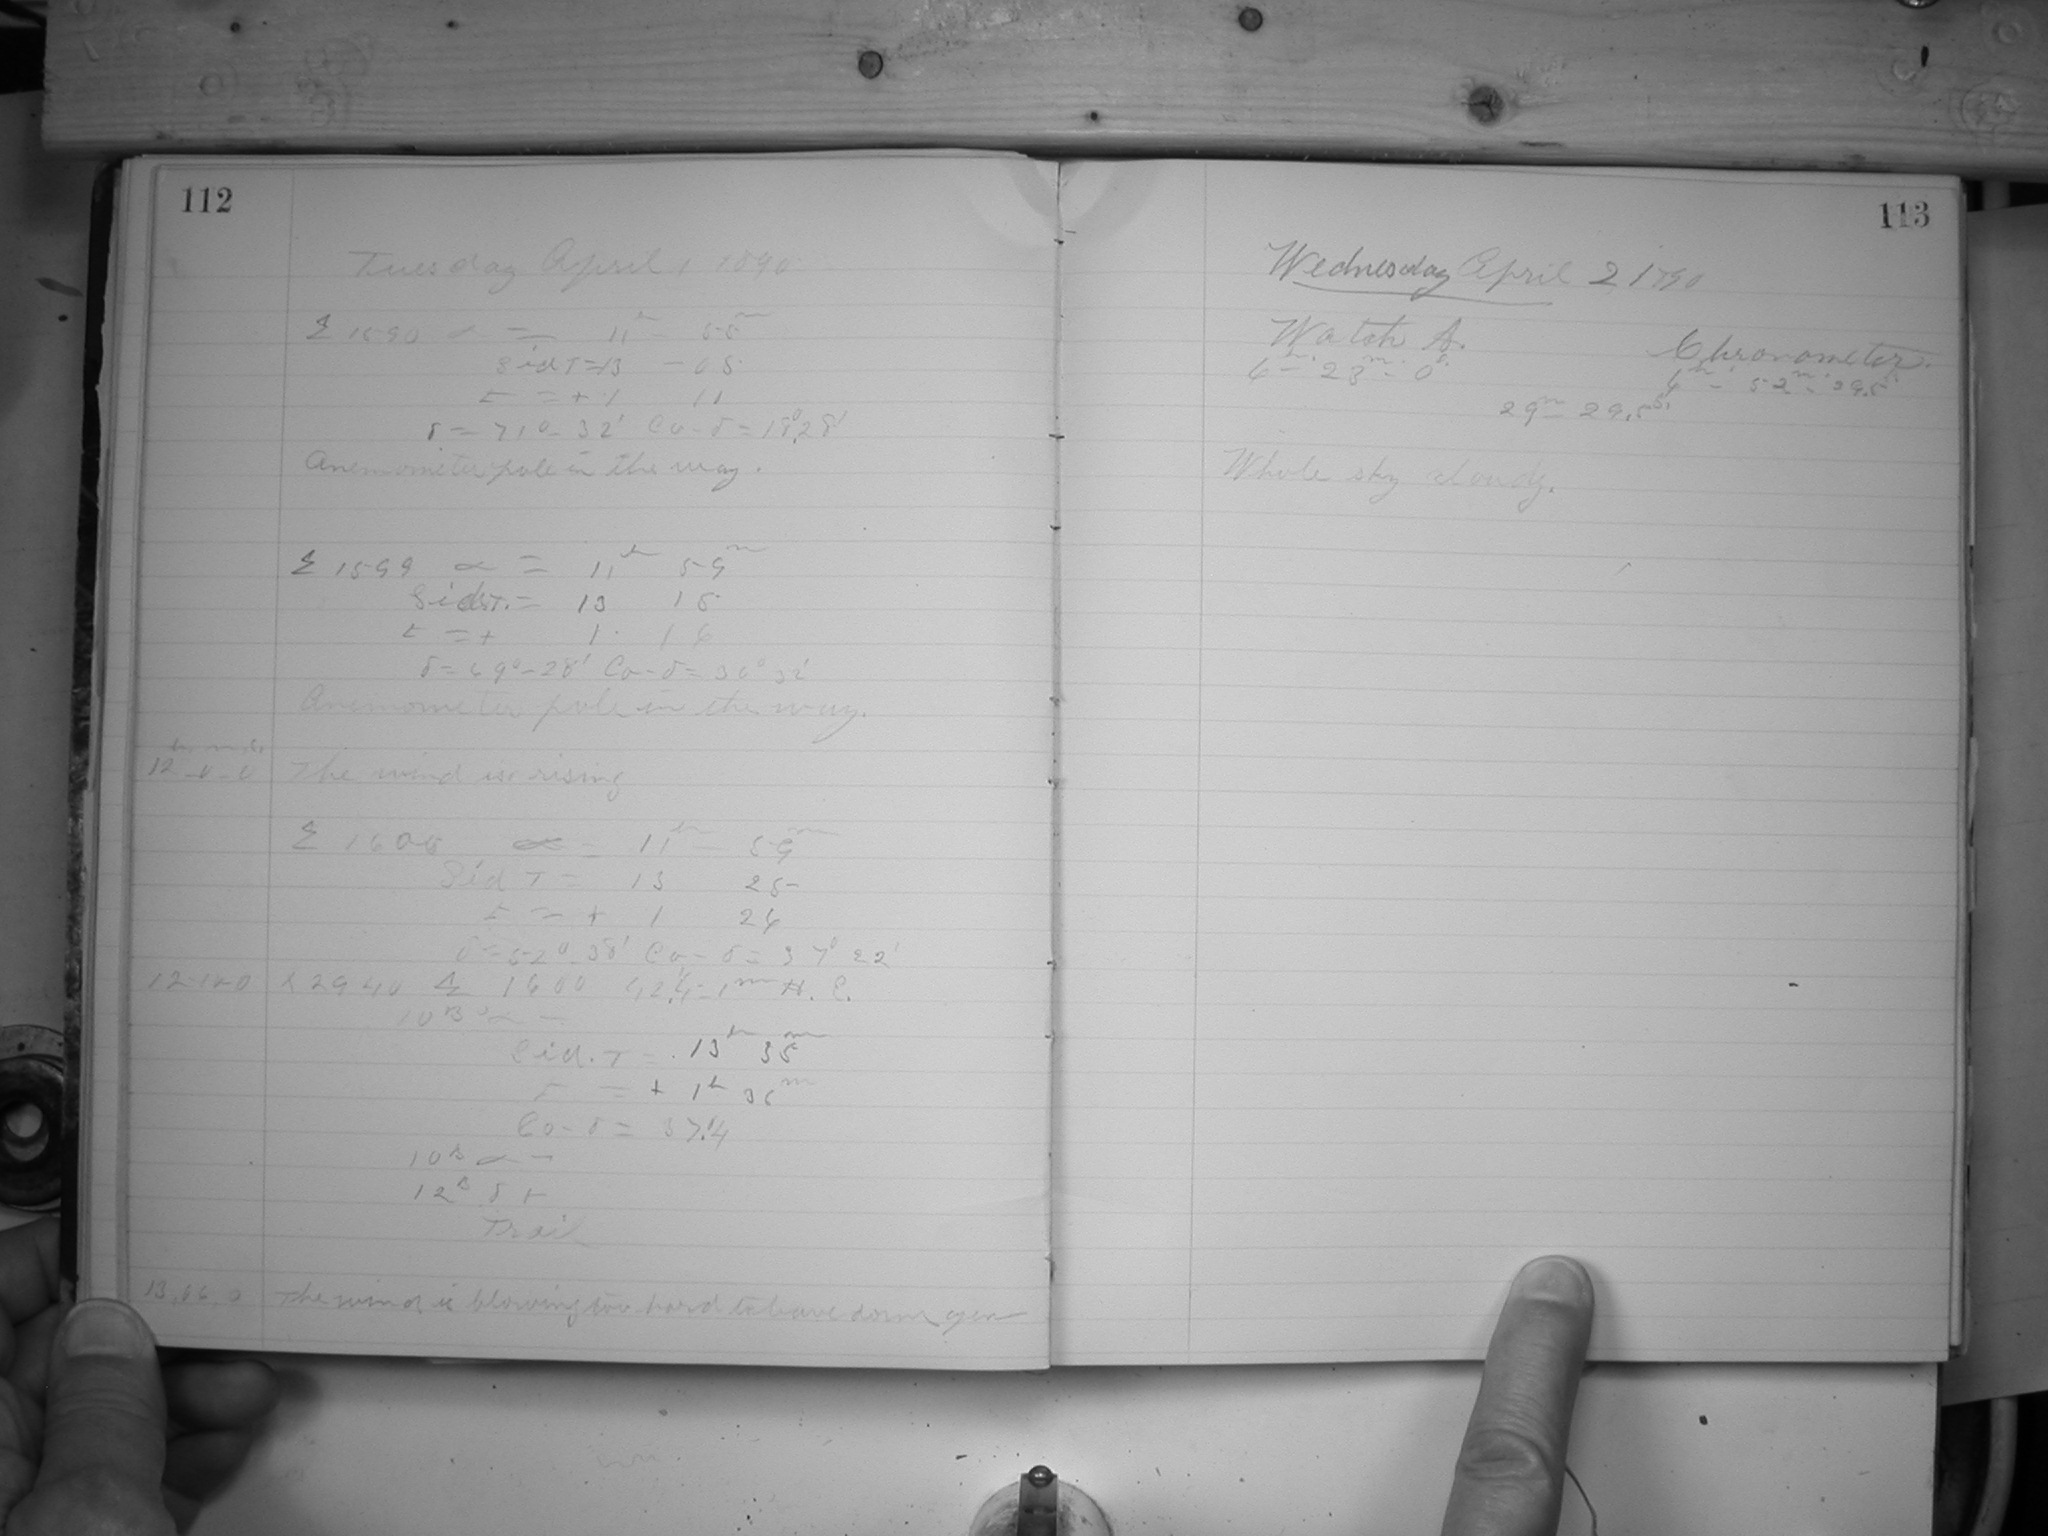 112
Tuesday April 1 1890
Σ 1590 α = 11h 55m
Sid T = 13 - 05
t = + 1 11
δ = 71° - 32' Co-δ = 18° 28'
Anemometer pole in the way.
Σ 1599 α = 11h 59m
Sid T. = 13 15
t = + 1 16
δ = 69° - 28' Co-δ = 32'
Anemometer pole in the way.
h. m. s.
12 - 0 - 0 The wind is rising
Σ 1606 α = 11h - 59m
Sid T = 13 25
t = + 1 24
δ = 52° - 38' Co-δ = 37° 22'
2940 Σ 1600 1m H. C.
10B α -
Sid. T = 13h 35m
t = + 1h 36m
Co-δ = 37.4
10B α -
12B δ +
Trail
The wind is blowing too hard to have dome open
113
Wednesday April 2 1890
Watch A. Chronometer.
4h - 23m - 0s. 4h - 52m - 29.5s
29m - 29.5s.
Whole sky cloudy.